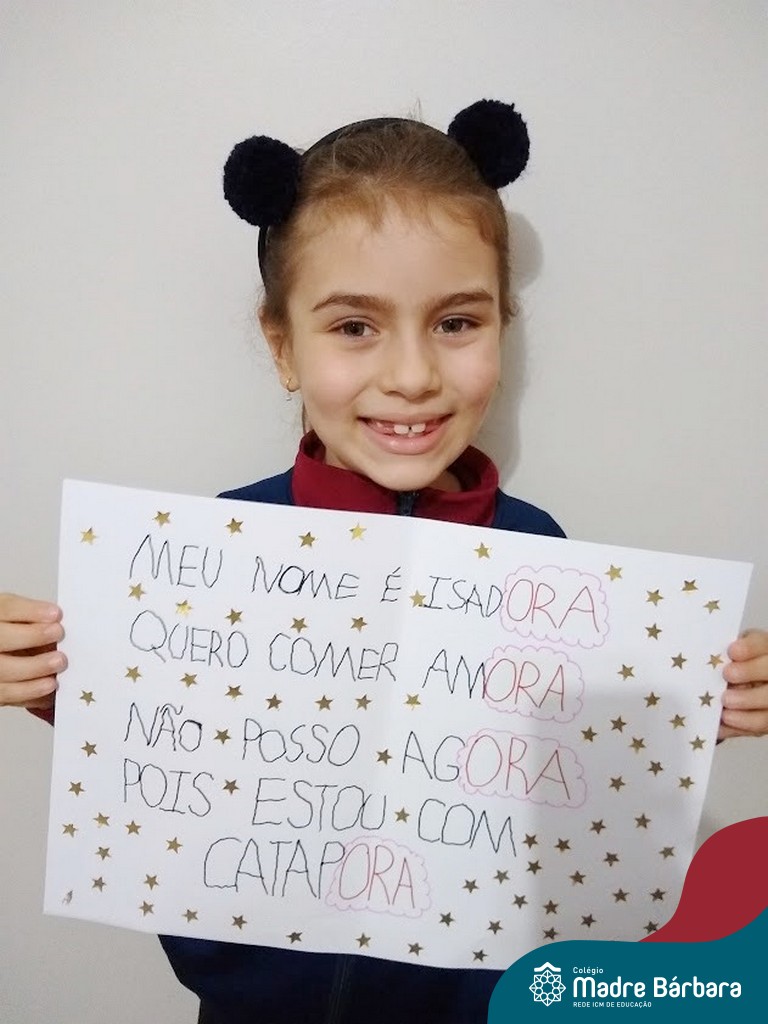 MEU NOME É ISADORA
QUERO COMER AMORA
NÃO POSSO AGORA
POIS ESTOU COM
CATAPORA
Colégio
Madre Bárbara
REDE ICM DE EDUCAÇÃO